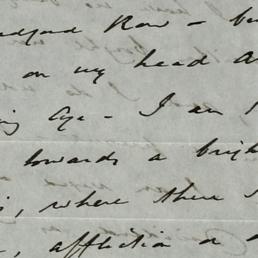 Bedford Row - be
on my head a
ing age - I am
towards a brigh
, where there
, affliction or